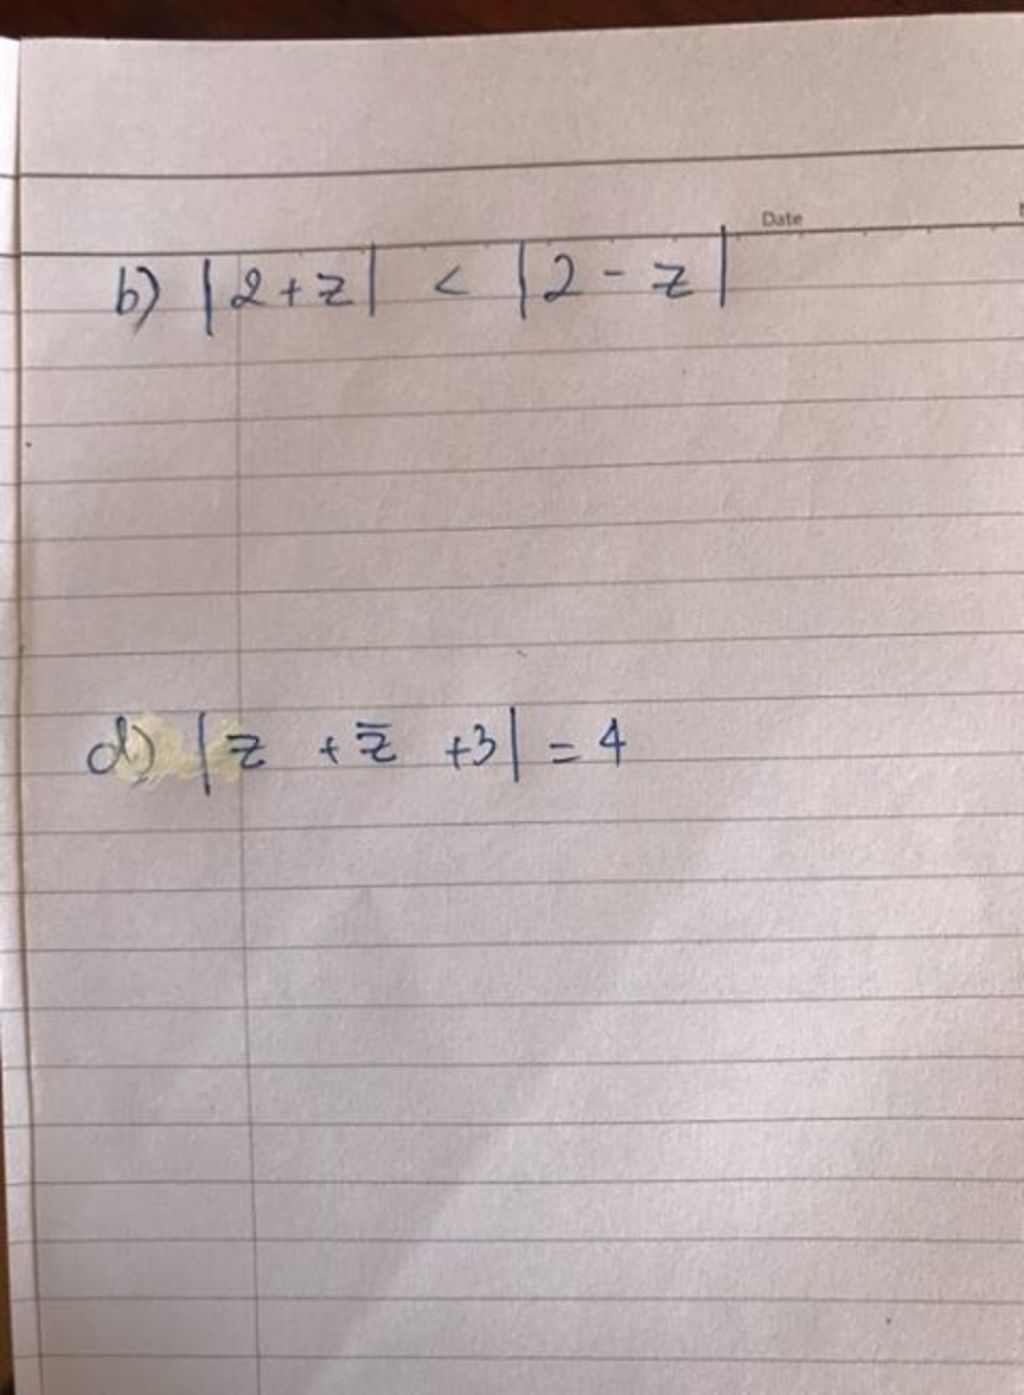 Date
b) |2+z| < |2-z|
d) |z +z̄ +3| = 4